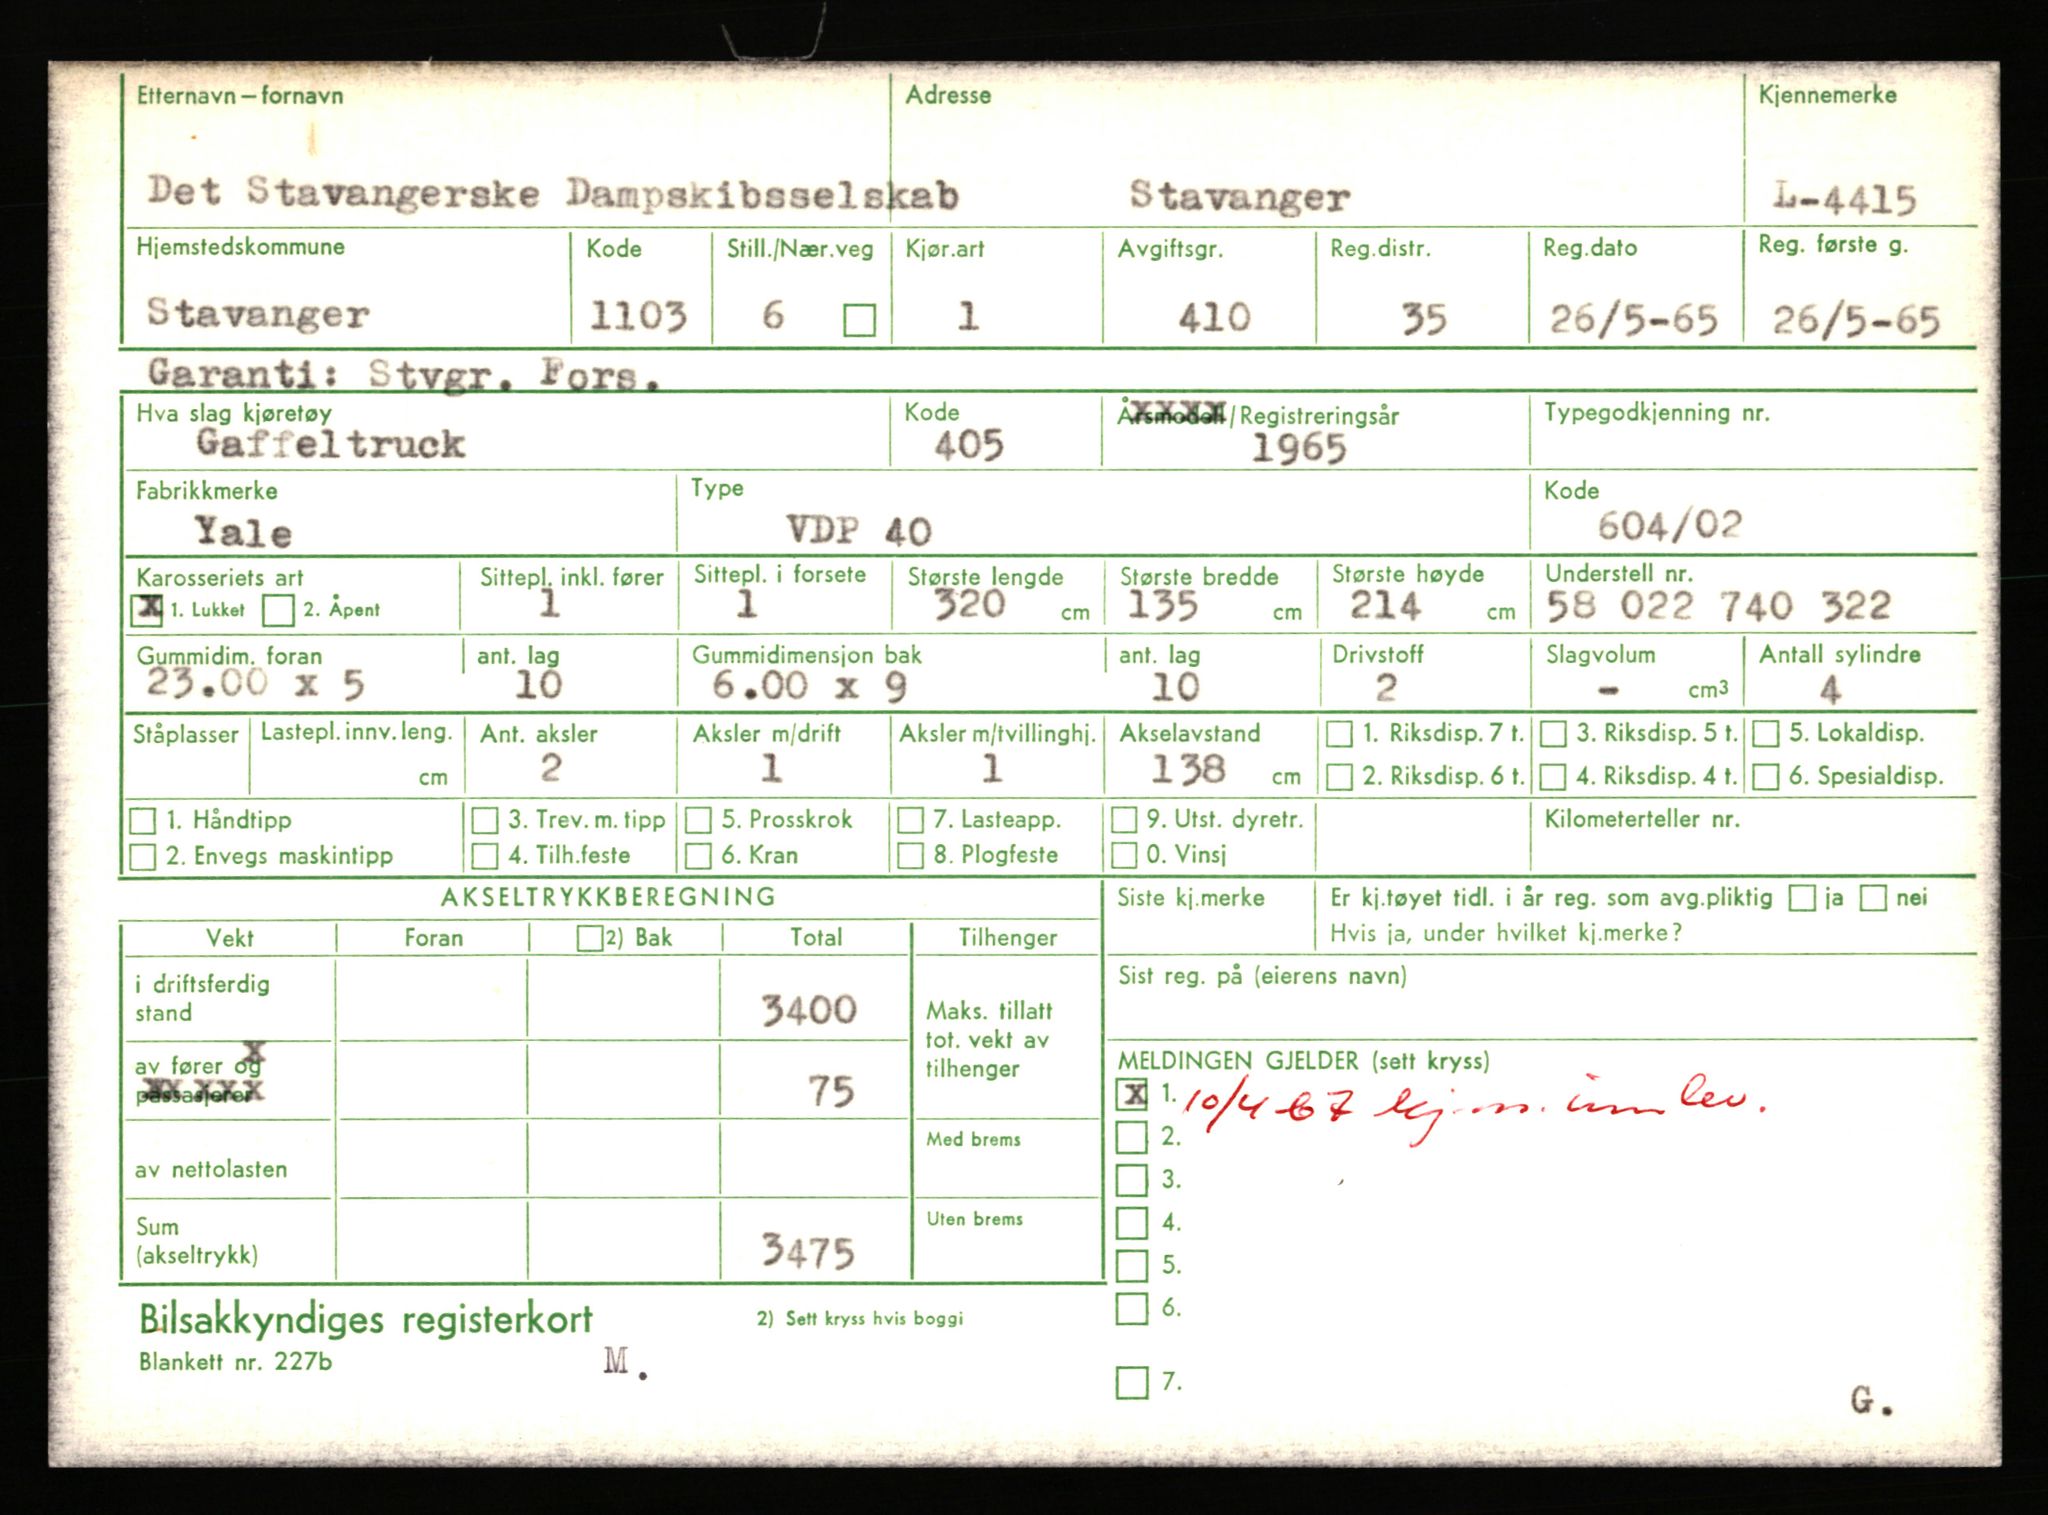 Etternavn – fornavn Adresse Kjennemerke
Det Stavangerske Dampskibsselskab Stavanger L-4415
Hjemstedskommune Kode Still./Nær.veg Kjør.art Avgiftsgr. Reg.distr. Reg.dato Reg. første g.
Stavanger 1103 6 1 410 35 26/5-65 26/5-65
Garanti: Stvgr. Fors.
Hva slag kjøretøy Kode Årsmodell/Registreringsår Typegodkjenning nr.
Gaffeltruck 405 1965
Fabrikkmerke Type Kode
Yale VDP 40 604/02
Karosseriets art Sittepl. inkl. fører Sittepl. i forsete Største lengde Største bredde Største høyde Understell nr.
X 1. Lukket 2. Åpent 1 1 320 cm 135 cm 214 cm 58 022 740 322
Gummidim. foran ant. lag Gummidimensjon bak ant. lag Drivstoff Slagvolum Antall sylindre
23.00 x 5 10 6.00 x 9 10 2 - cm3 4
Ståplasser Lastepl. innv. leng. Ant. aksler Aksler m/drift Aksler m/tvillinghj. Akselavstand 1. Riksdisp. 7 t. 3. Riksdisp. 5 t. 5. Lokaldisp.
cm 2 1 1 138 cm 2. Riksdisp. 6 t. 4. Riksdisp. 4 t. 6. Spesialdisp.
1. Håndtipp 3. Trev. m. tipp 5. Prosskrok 7. Lasteapp. 9. Utst. dyretr. Kilometerteller nr.
2. Envegs maskintipp 4. Tilh.feste 6. Kran 8. Plogfeste 0. Vinsj
AKSELTRYKKBEREGNING Siste kj.merke Er kj.tøyet tidl. i år reg. som avg.pliktig ja nei
Hvis ja, under hvilket kj.merke?
Vekt Foran 2) Bak Total Tilhenger
Sist reg. på (eierens navn)
i driftsferdig
stand 3400 Maks. tillatt
tot. vekt av
tilhenger
av fører og
passasjerer 75
MELDINGEN GJELDER (sett kryss)
X 1. 10/4 67 kj.m. innlev.
2.
Med brems
av nettolasten
3.
4.
Uten brems
Sum
(akseltrykk) 3475
5.
6.
Bilsakkyndiges registerkort 2) Sett kryss hvis boggi
Blankett nr. 227b M.
7.
G.